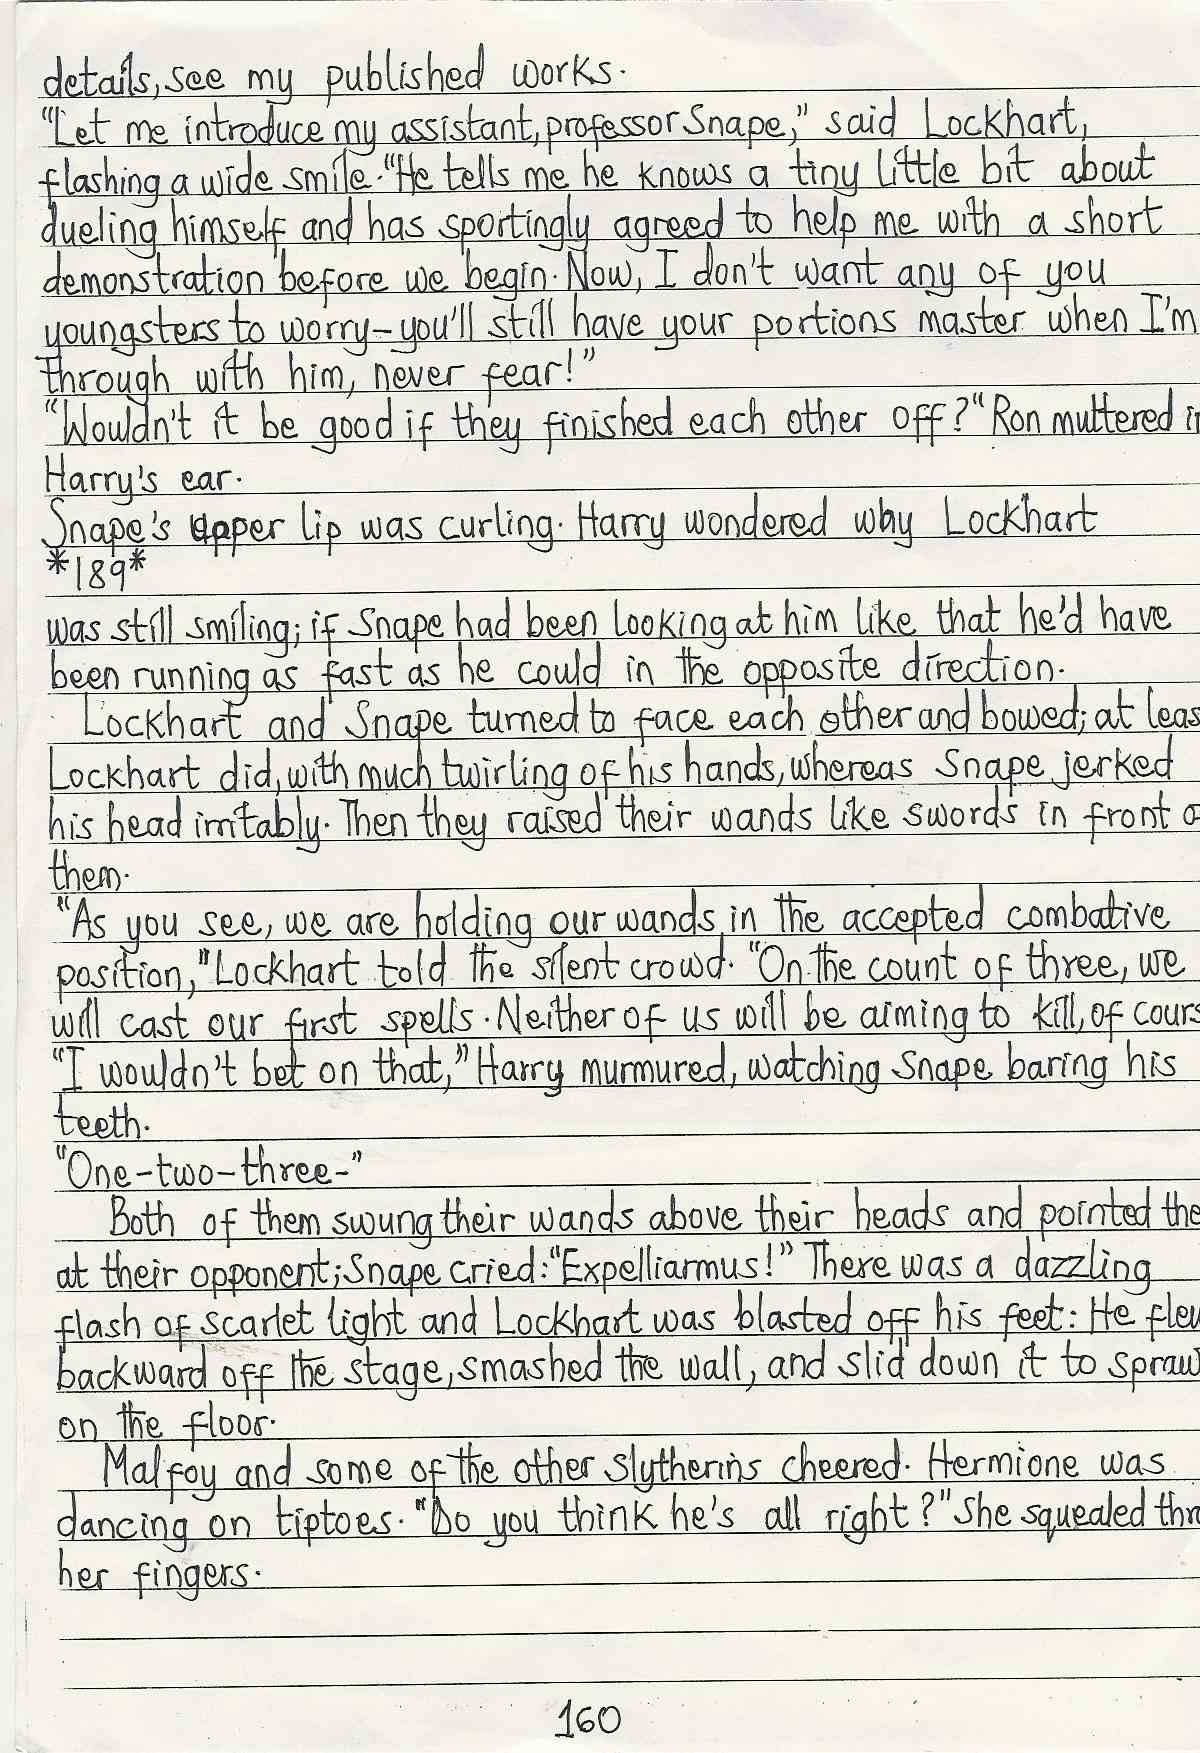 details, see my published works.
"Let me introduce my assistant, professor Snape," said Lockhart,
flashing a wide smile. "He tells me he knows a tiny little bit about
dueling himself and has sportingly agreed to help me with a short
demonstration before we begin. Now, I don't want any of you
youngsters to worry-you'll still have your portions master when I'm
through with him, never fear!"
"Wouldn't it be good if they finished each other off?" Ron muttered in
Harry's ear.
Snape's upper lip was curling. Harry wondered why Lockhart
*189*
was still smiling; if Snape had been looking at him like that he'd have
been running as fast as he could in the opposite direction.
Lockhart and Snape turned to face each other and bowed; at leas
Lockhart did, with much twirling of his hands, whereas Snape jerked
his head irritably. Then they raised their wands like swords in front o
them.
"As you see, we are holding our wands in the accepted combative
position," Lockhart told the silent crowd. "On the count of three, we
will cast our first spells. Neither of us will be aiming to kill, of cours
"I wouldn't bet on that," Harry murmured, watching Snape baring his
teeth.
"One-two-three-"
Both of them swung their wands above their heads and pointed the
at their opponent; Snape cried: "Expelliarmus!" There was a dazzling
flash of scarlet light and Lockhart was blasted off his feet: He flew
backward off the stage, smashed the wall, and slid down it to sprawl
on the floor.
Malfoy and some of the other Slytherins cheered. Hermione was
dancing on tiptoes. "Do you think he's all right?" She squealed thro
her fingers.
160